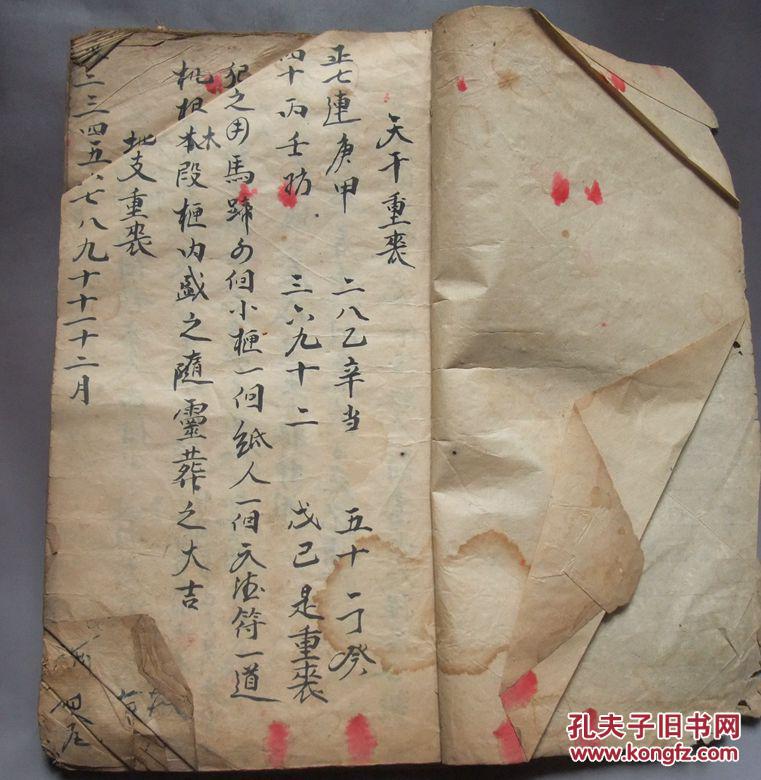 天干重喪
正七連庚甲 二八乙辛当 五十一丁癸
四十丙壬妨 三六九十二 戊己是重喪
犯之用馬蹄 個小柜一個紙人一個天德符一道
桃根木段柜内盛之隨靈葬之大吉
地支重喪
二三四五六七八九十十一十二月
孔夫子旧书网
www.kongfz.com